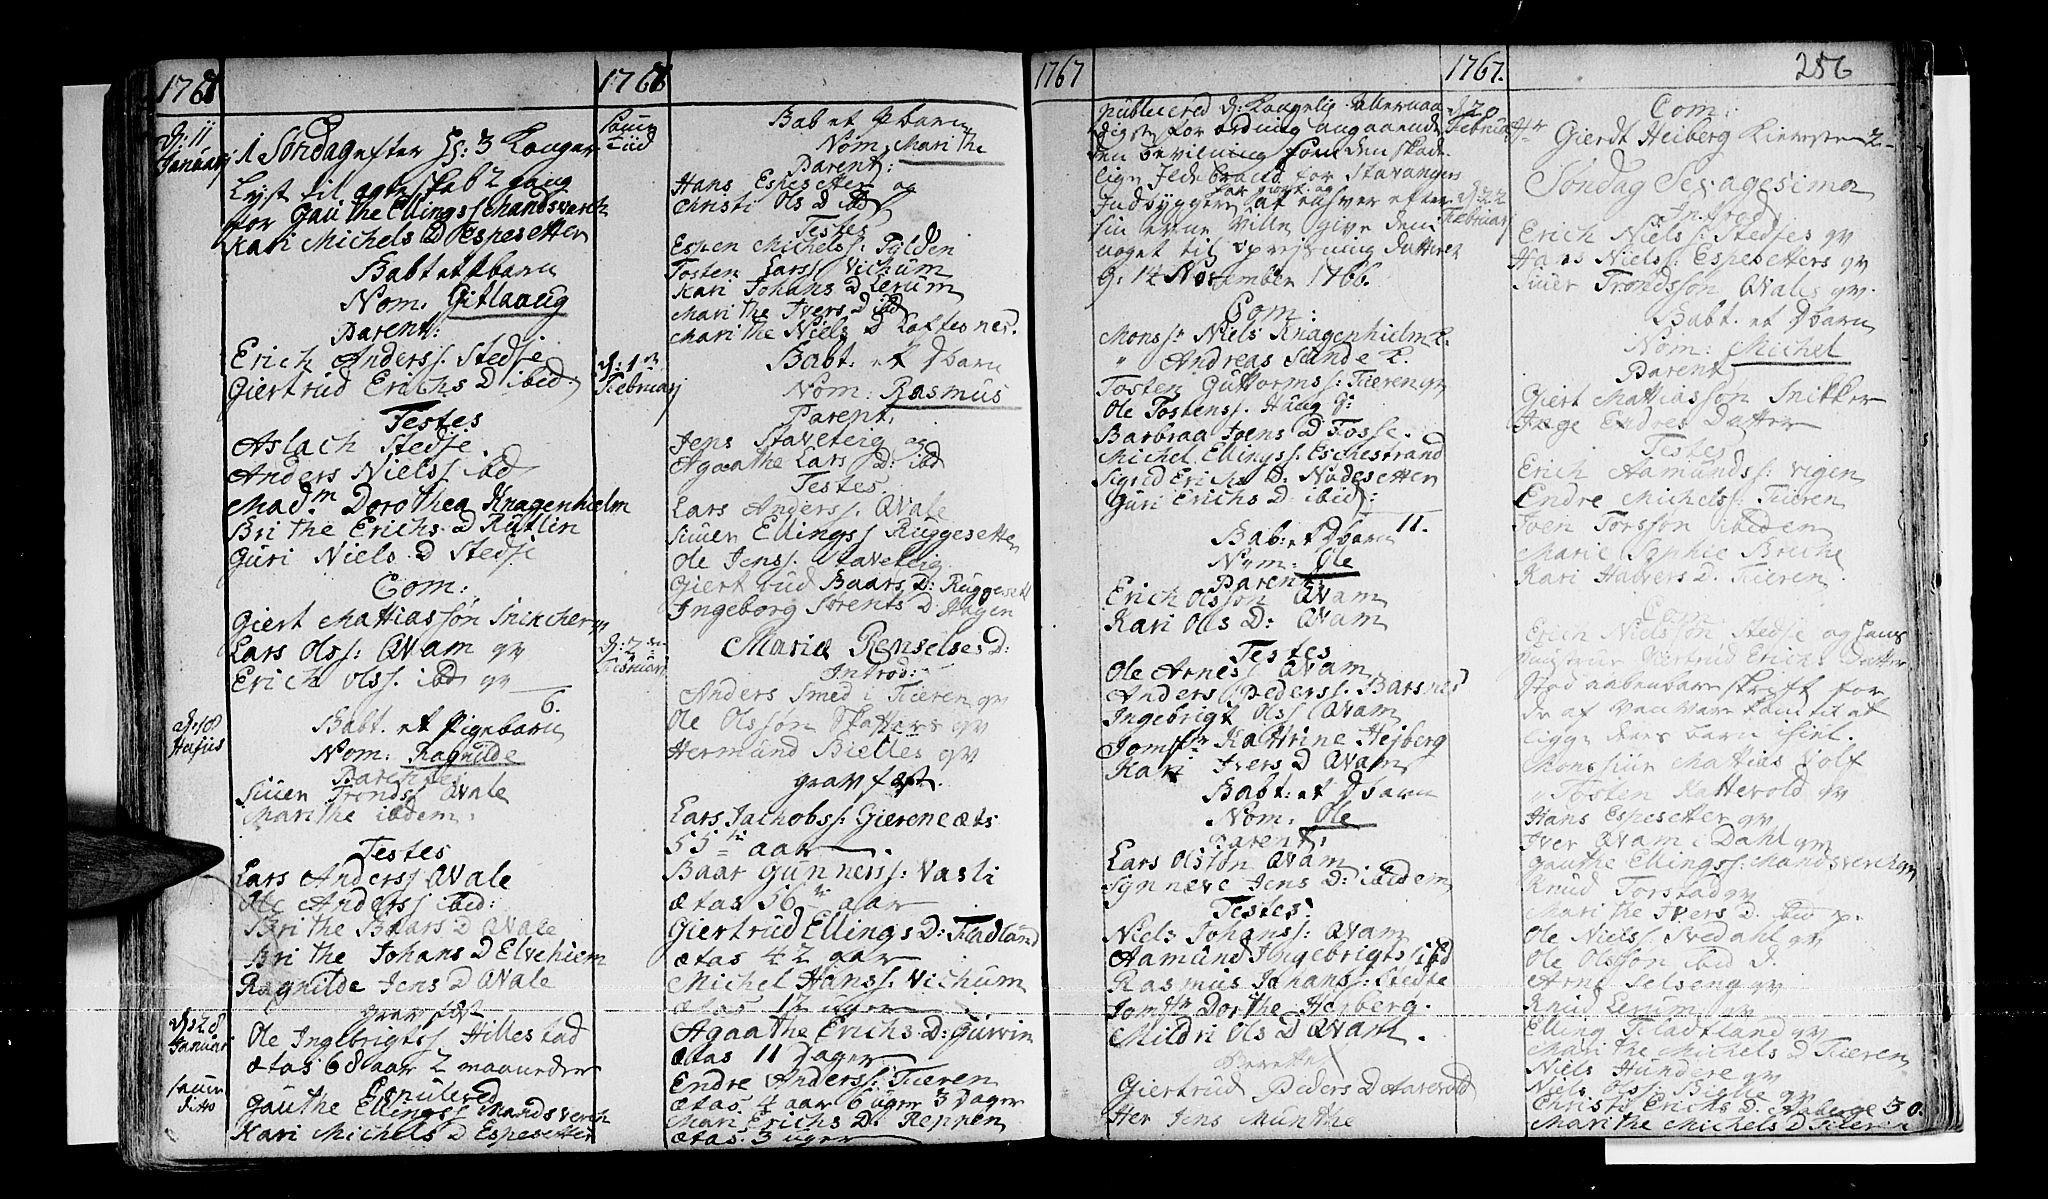 1767
d: 11
Januarj
1 Søndag efter H: 3 Konger
Lyst til ægteskab 2 gang
for Gauthe Ellingss Mandsverch
Kari Michels D Espesetter
Babt et Pbarn
Nom: Gitlaug
Parent:
Erich Anderss: Stedje
Giertrud Erichs D ibid.
Testes
Aslach Stedje
Anders Nielss ibd
Madm Dorothea Knagenhielm
Brithe Erichs D Rutlin
Guri Niels D Stedje
Com:
Giert Mattiassøn Snikcher qv
Lars Olss: Qvam qv
Erich Olss. ibd qv
6.
d: 18
Hujus
Babt. et Pigebarn
Nom: Ragnilde
Parentes
Siuer Tronds Qvale
Marithe ibdem:
Testes
Lars Anderss Qvale
Ole Anderss ibid:
Brithe Baars D Qvale
Brithe Johans D Elvehiem
Ragnilde Jens D Qvale
d: 28
Januarj
grav fæst
Ole Ingebrigtss Hillestad
ætas 68 aar 2 maaneder
samme
ditto
Copulered
Gauthe Ellingss Mandsverch
Kari Michels D Espesetter
1767
samme
tiid
Bab et Pbarn
Nom: Marithe
Parent:
Hans Espesetter og
Christi Ols D ibd
Testes
Espen Michelss: Tylden
Tosten Larss Vichum
Kari Johans D Lerum
Marithe Ivers D ibd
Marithe Niels D Loftesnes.
d: 1
Februarj
Babt. et Dbarn
Nom: Rasmus
Parent.
Jens Staveteig og
Agaathe Lars D: ibd
Testes.
Lars Anderss: Qvale
Siuer Ellingss Ruggesetter
Ole Jenss: Staveteig
Giertrud Baars D: Ruggesett
Ingeborg Sørens D: Hagen
d: 2
Februarj
Mariæ Renselses D:
Introd:
Anders Smed i Fieren qv
Ole Olssøn Skatters qv
Hermund Bielles qv
grav fæst.
Lars Jachobss: Gierene æts
55 aar
Baar Gunnerss: Vasli
ætas 56 aar
Giertrud Ellings D: Fladland
ætas 42 aar
Michel Hanss: Vichum
ætas 12 uger
Agaathe Erichs D: Gurvin
ætas 11 Dager
Endre Anderss: Fieren
ætas 4 aar 6 uger 3 Dager
Mari Erichs D: Reppen
ætas: 3 uger
1767
publicered d: Kongelig allernaa
digste for ordning angaaende
en bevilning som den skade
lige Ildebrand for Stavangers
har giort og
Indbyggere at enhver efter
sin evne ville give dem
noget til opreisning datteret
d: 14 November 1766.
Com:
Monsr Niels Knagenhielm
" Andreas Sunde
Tosten Guttormss: Fieren qv
Ole Tostenss. Haug
Barbraa Joens D Fosse.
Michel Ellingss: Eschestrand
Sigrid Erichs D: Nødesetter
Guri Erichs D: ibid:
11.
Bab: et Dbarn
Nom: Ole
Parent:
Erich Olssøn Qvam
Kari Ols D: Qvam
Testes
Ole Arness Qvam
Anders Pederss: Barsnes
Ingebrigt Olss Qvam
Jomfr Kathrine Hejberg
Kari Ivers D Qvam
Babt: et Dbarn
Nom: Ole
Parent:
Lars Olssøn Qvam
Synneve Jens D: ibidem
Testes:
Niels Johanss: Qvam
Aamund Ingebrigts ibd
Rasmus Johanss: Stedje
Jomfr Dorthe Hejberg.
Mildri Ols D Qvam.
Giertrud Peders D Aarevold
Her Jens Munthe
1767.
256
d 20
Februar
Com:
Hr Gierdt Heiberg Kiereste 2
d: 22
Februarj
Søndag Sexagesima
Introd:
Erich Nielss: Stedjes qv
Hans Nielss: Espesetters qv
Siuer Trondssøn Qvales qv.
Babt. et Dbarn
Nom: Michel
Parent
Giert Mattiassøn Snikker
Inge Endres Datter
Testes
Erich Aamundss: Vigen
Endre Michelss: Fieren
Joen Torssøn ibidem
Marie Sophie Breche
Kari Halvers D. Fieren.
Com:
Erich Nielssøn Stedje og Hans
Hustrue Giertrud Erichs Datter
stod aabenbare skrift for
de af vaavare kom til at
ligge deres barn ihiel.
Monsiur Mattias Wolf
" Tosten Kattevold qv
Hans Espesetter qv
Iver Qvam i Dahl qv
Gauthe Ellingss: Mandsverch qv
Knud Torstad qv
Marithe Ivers D. ibid
Ole Nielss Svedahl qv
Ole Olssøn ibid
Arne Selseng qv
Knud Lerum qv
Elling Fladtland qv
Marithe Michels D Fieren
Niels Hundere qv
Niels Olss: Bielle qv
Christi Erichs D. 30.
Marithe Michels D Fieren